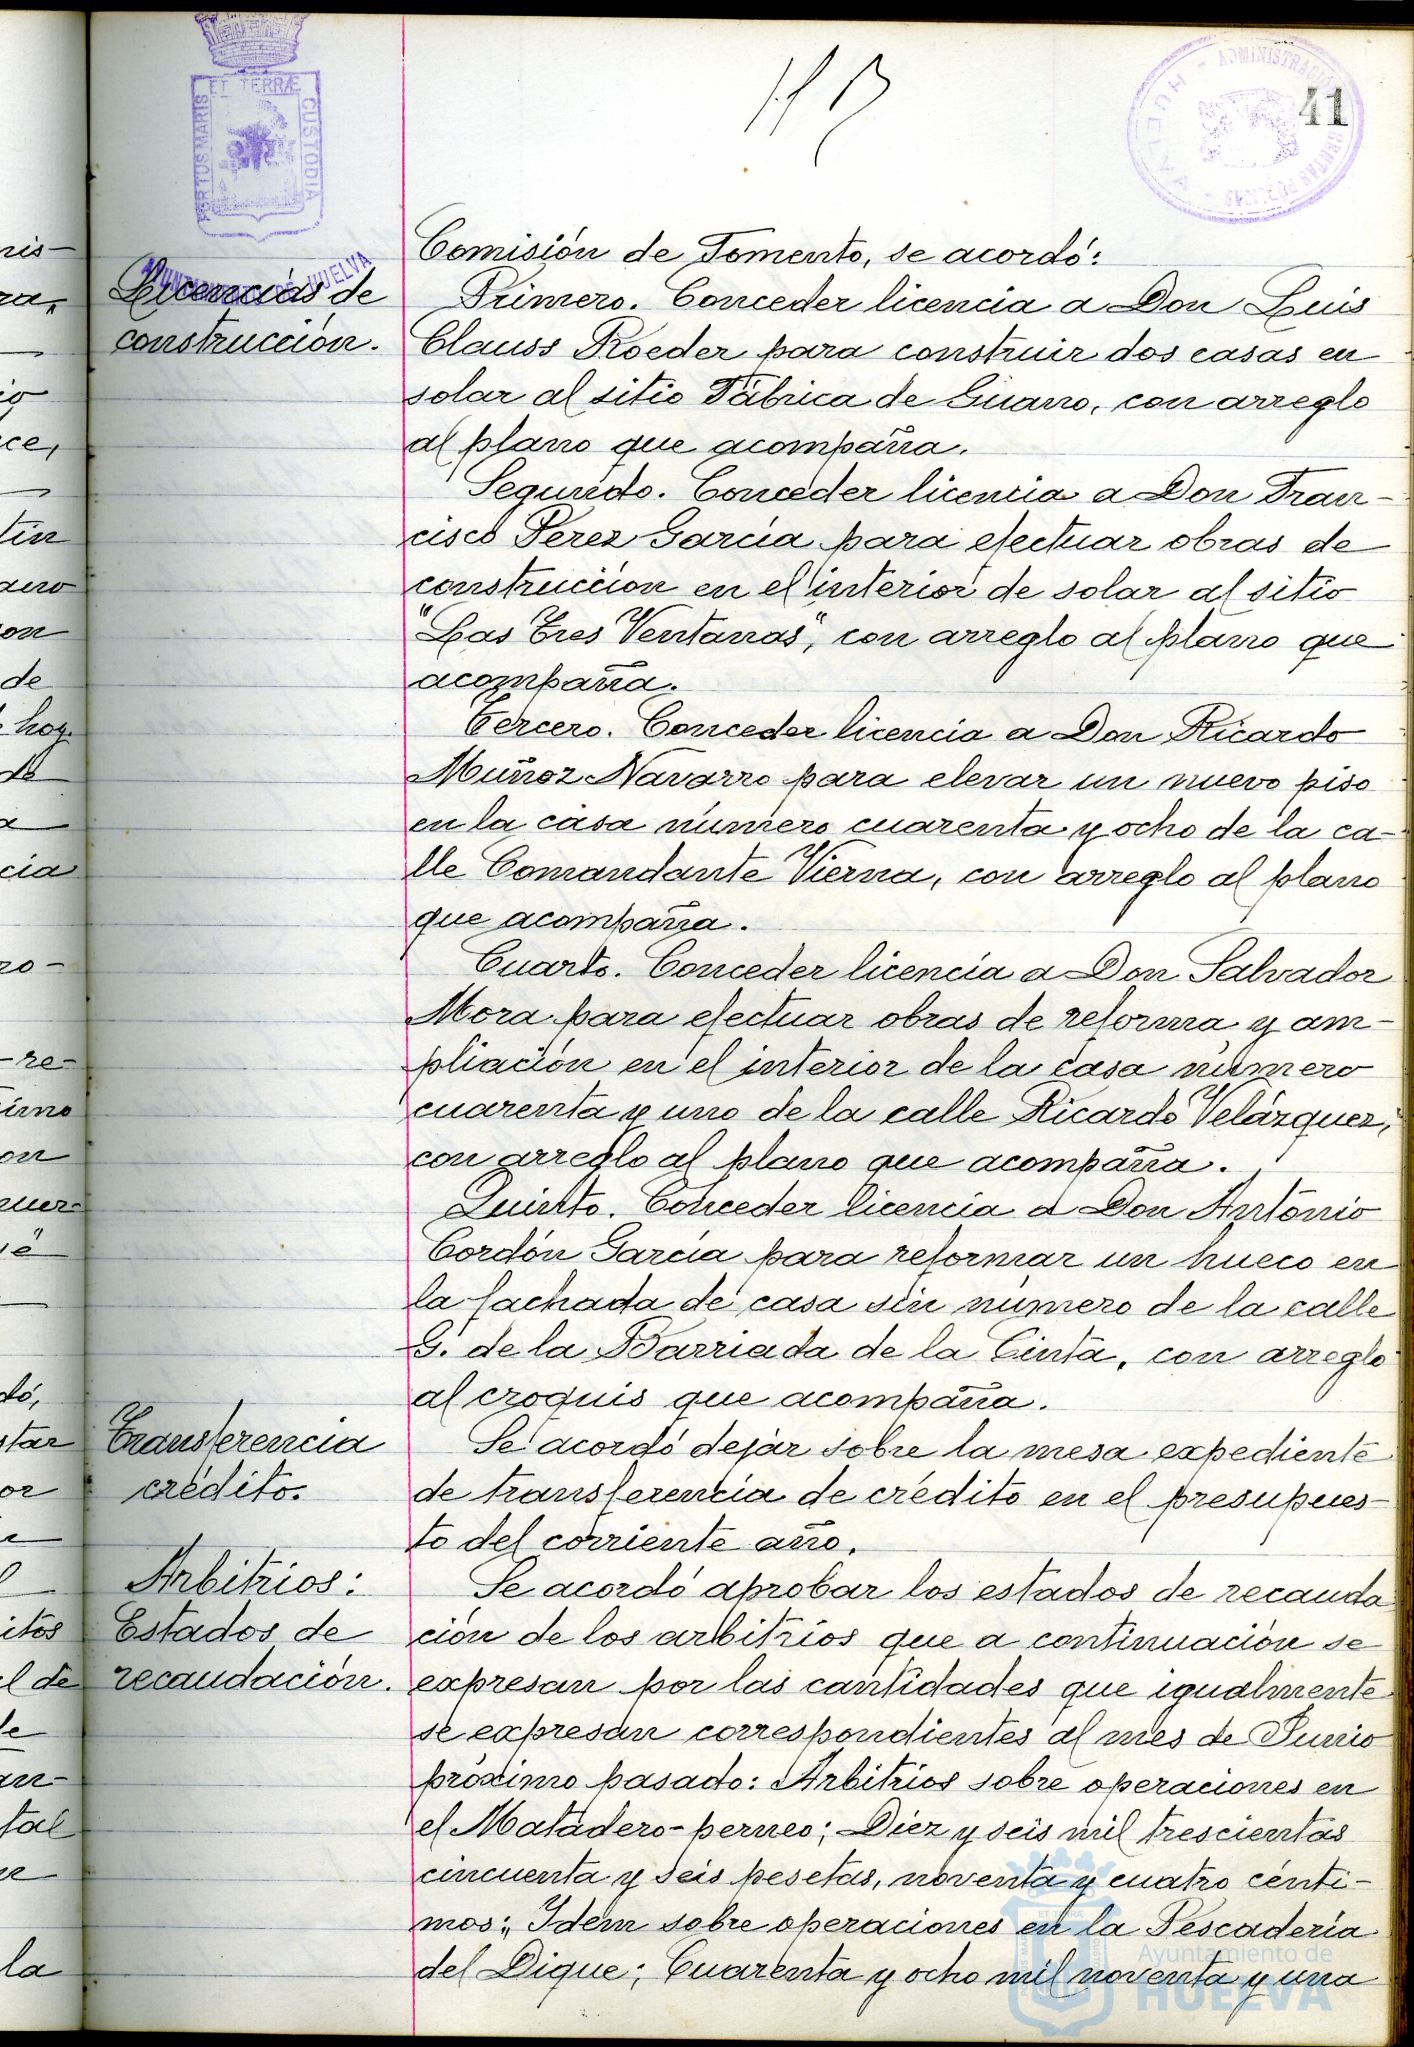 41
PORTUS MARIS ET TERRÆ CUSTODIA
AYUNTAMIENTO DE HUELVA
Licencias de
construcción.
Comisión de Fomento, se acordó:
Primero. Conceder licencia a Don Luis
Clauss Roeder para construir dos casas en
solar al sitio Fábrica de Guano, con arreglo
al plano que acompaña.
Segundo. Conceder licencia a Don Fran-
cisco Perez García para efectuar obras de
construcción en el interior de solar al sitio
"Las Tres Ventanas", con arreglo al plano que
acompaña.
Tercero. Conceder licencia a Don Ricardo
Muñoz Navarro para elevar un nuevo piso
en la casa número cuarenta y ocho de la ca-
lle Comandante Vierna, con arreglo al plano
que acompaña.
Cuarto. Conceder licencia a Don Salvador
Mora para efectuar obras de reforma y am-
pliación en el interior de la casa número
cuarenta y uno de la calle Ricardo Velázquez,
con arreglo al plano que acompaña.
Quinto. Conceder licencia a Don Antonio
Cordón García para reformar un hueco en
la fachada de casa sin número de la calle
G. de la Barriada de la Cinta, con arreglo
al croquis que acompaña.
Transferencia
crédito.
Se acordó dejar sobre la mesa expediente
de transferencia de crédito en el presupues-
to del corriente año.
Arbitrios:
Estados de
recaudación.
Se acordó aprobar los estados de recauda
ción de los arbitrios que a continuación se
expresan por las cantidades que igualmente
se expresan correspondientes al mes de Junio
próximo pasado: Arbitrios sobre operaciones en
el Matadero-perneo; Diez y seis mil trescientas
cincuenta y seis pesetas, noventa y cuatro cénti-
mos; Idem sobre operaciones en la Pescadería
del Dique; Cuarenta y ocho mil noventa y una
Ayuntamiento de
HUELVA